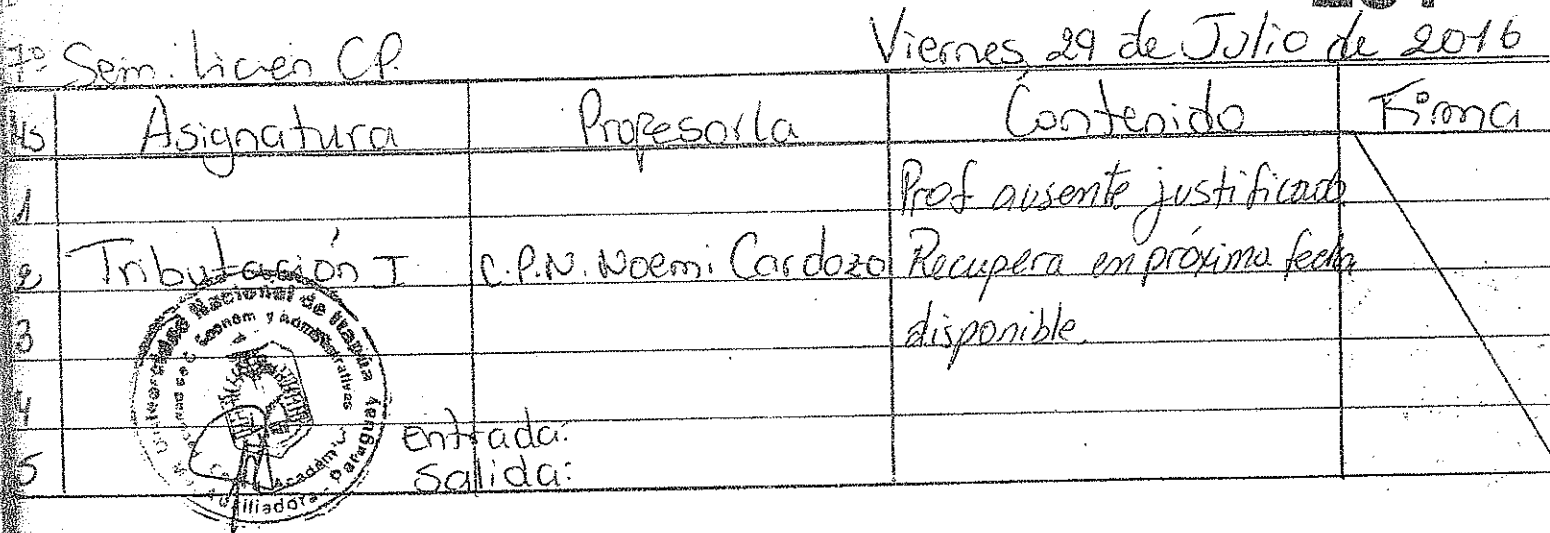 7º Sem. Licien C.P. Viernes, 29 de Julio de 2016
Hs Asignatura Profesor/a Contenido Firma
1 Prof ausente justificado.
2 Tributación I C.P.N. Noemi Cardozo Recupera en próxima fecha
3 disponible.
4
entrada:
5 salida:
Universidad Nacional de Itapúa
Paraguay